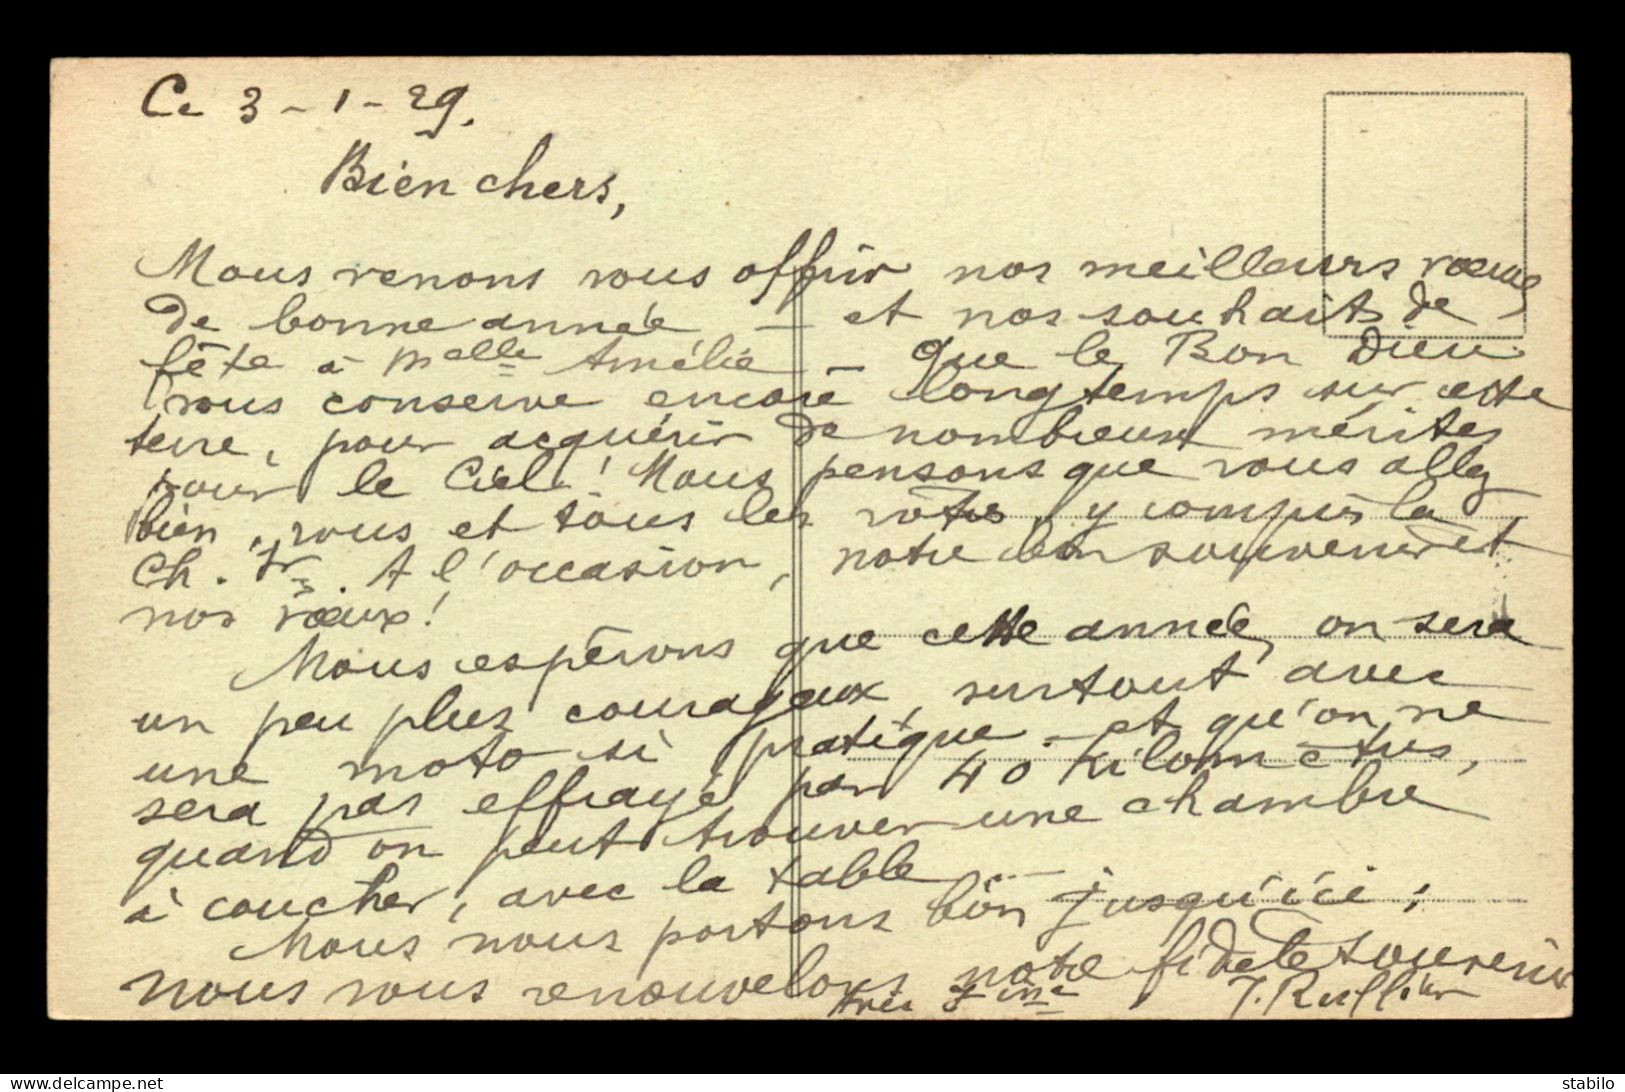 Ce 3-1-29.
Bien chers,
Nous venons vous offrir nos meilleurs vœux
de bonne année - et nos souhaits de
fête à Melle Amélie - Que le Bon Dieu
vous conserve encore longtemps sur cette
terre, pour acquérir de nombreux mérites
pour le Ciel! Nous pensons que vous allez
bien, vous et tous les vôtres, y compris la
Ch. Tr. A l'occasion, notre bon souvenir et
nos vœux!
Nous espérons que cette année, on sera
un peu plus courageux, surtout avec
une moto si pratique - et qu'on ne
sera pas effrayé par 40 Kilomètres,
quand on peut trouver une chambre
à coucher, avec la table...
Nous nous portons bien jusqu'ici;
nous vous renouvelons notre fidèle souvenir
J. Ruffier
delcampe.net
stabilo